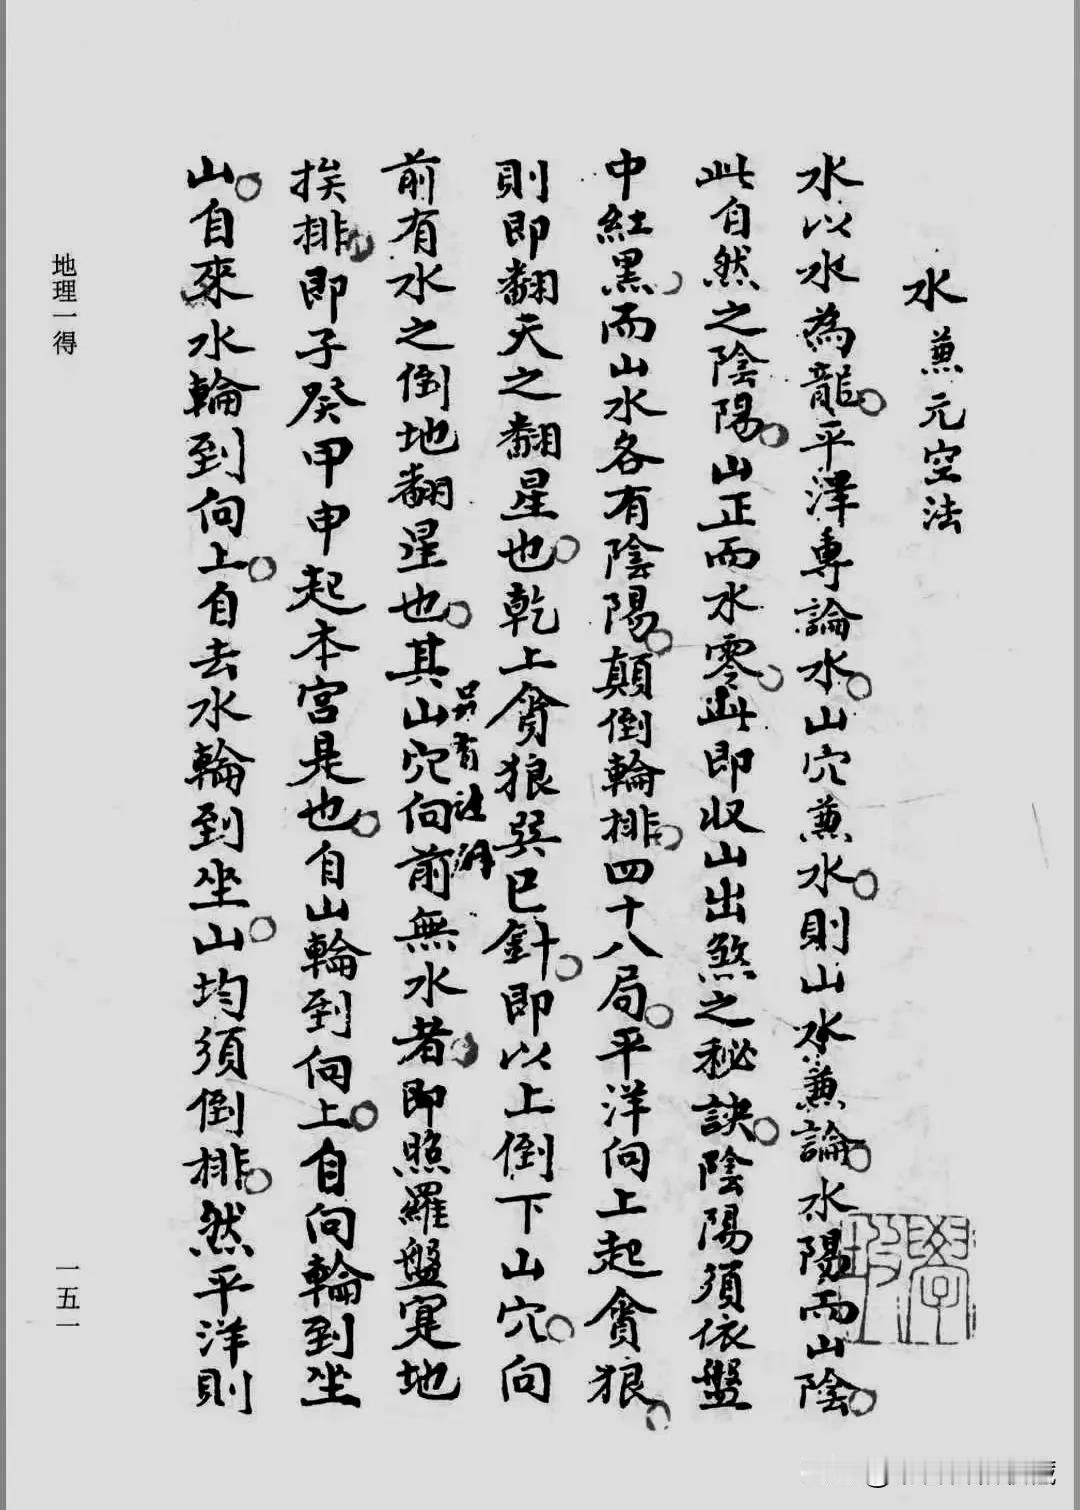 水兼元空法
水以水為龍平洋專論水山穴兼水則山水兼論水陽而山陰
此自然之陰陽山正而水零此即收山出煞之秘訣陰陽須依盤
中紅黑而山水各有陰陽顛倒輪排四十八局平洋向上起貪狼
則即翻天之翻星也乾上貪狼巽巳針即以上倒下山穴向
前有水之倒地翻星也其山穴向前無水者即照羅盤寔地
另有註解
挨排即子癸甲申起本宮是也自山輪到向上自向輪到坐
山自來水輪到向上自去水輪到坐山均須倒排然平洋則
地理一得
一五一